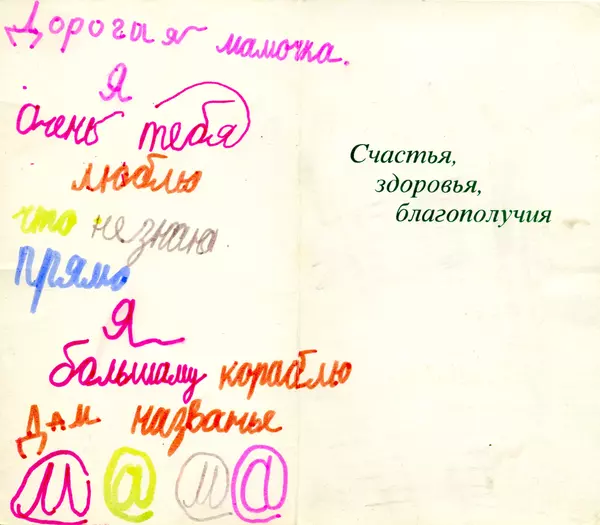 Дорогая мамочка.
Я
очень тебя
люблю
что не знаю
прямо
Я
большому кораблю
Дам названье
мама
Счастья,
здоровья,
благополучия